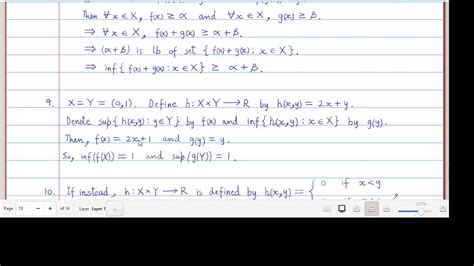 Then ∀x∈X, f(x) ≥ α and ∀x∈X, g(x) ≥ β.
⇒ ∀x∈X, f(x)+g(x) ≥ α+β.
⇒ (α+β) is lb of set {f(x)+g(x): x∈X}.
⇒ inf{f(x)+g(x): x∈X} ≥ α+β.
9. X=Y = (0,1). Define h: X×Y → R by h(x,y) = 2x+y.
Denote sup{h(x,y): y∈Y} by f(x) and inf{h(x,y): x∈X} by g(y).
Then, f(x) = 2x+1 and g(y) = y.
So, inf(f(X)) = 1 and sup(g(Y)) = 1.
10. If instead, h: X×Y → R is defined by h(x,y) = { 0 if x<y
Page 13 of 14 Layer Layer 1